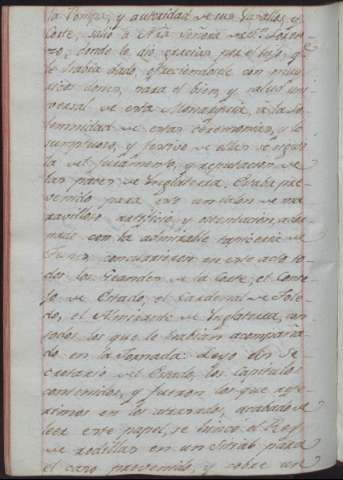 la Pompa, y autoridad de sus Vasallos, y
Corte, salió a Nra Señora de Sn. Loren-
zo, donde le dió gracias por el hijo, qe.
le había dado, ofreciendosele con muy
altos dones, para el bien, y salud uni-
versal de esta Monarquia, a la So-
lemnidad de estas ceremonias, y lo
sumptuoso, y festivo de ellas se seguia
la del Juramento, y capitulacion de
las pazes de Inglaterra. Estaba pre-
venido para esto un salon de ma-
ravilloso artificio, y ostentacion, ade-
mas con la admirable tapiceria de
Tunez, concurrieron en este acto to-
dos los Grandes de la Corte, el Conse-
jo de Estado, el Cardenal de Tole-
do, el Almirante de Inglaterra, con
todos los que le habian acompaña-
do en la Jornada: leyó un Se-
cretario de Estado, los capitulos
contenidos, y fueron los que ogx-
dimos en los tratados, acabado de
leer este papel, se hincó el Rey
de rodillas en un Sitial para
el caso prevenido, y sobre un